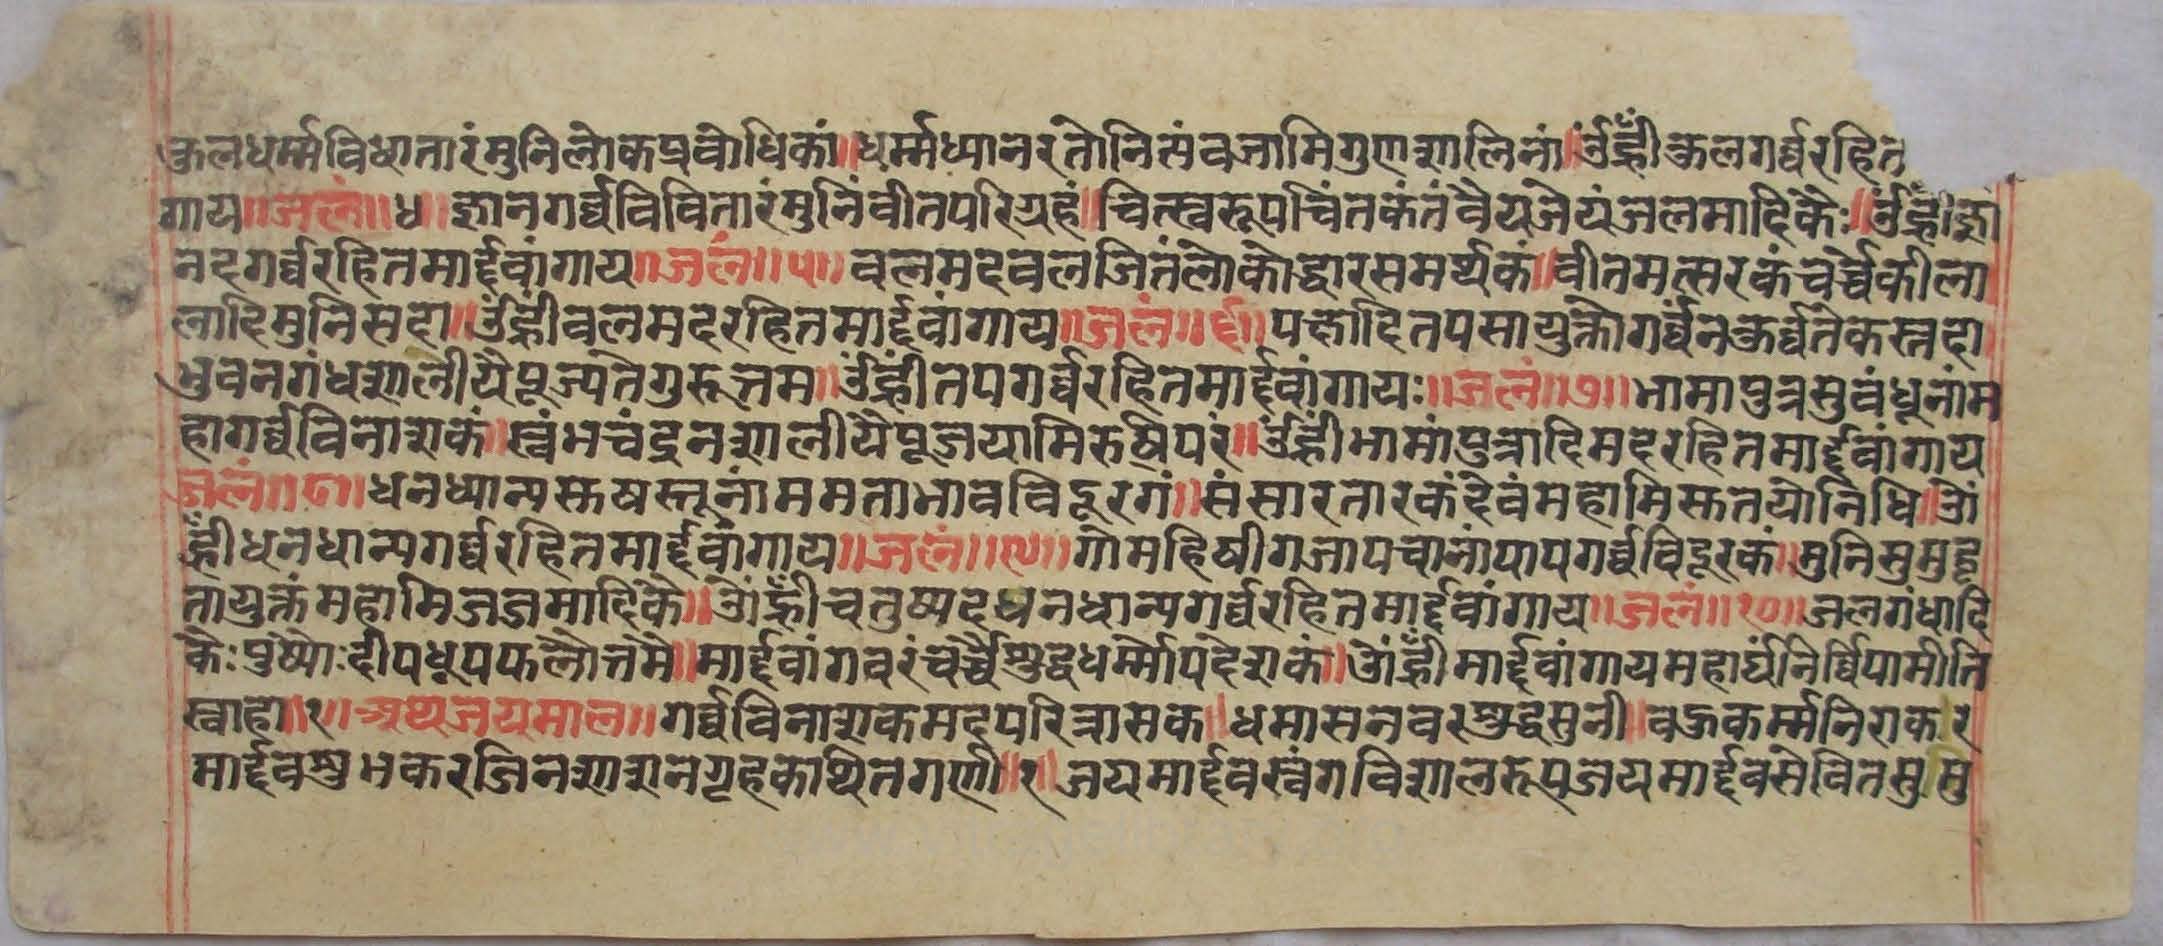 कुलधर्म्मविधातारंमुनिलोकप्रवोधिकां॥धर्म्मध्यानरतोनिसंवजामिगुणशालिनां॥उँह्रीँकुलगर्व्वरहित
गाय॥जलं॥४॥ज्ञानगर्व्वविवितारंमुनिंवीतपरिग्रहं॥चित्स्वरूपचिंतकंतंवैयजेयंजलमादिकैः॥उँह्रीँज्ञा
नदगर्व्वरहितमार्द्दवांगाय॥जलं॥५॥वलमदवलजितंलोकोद्धारसमर्थकं॥वीतमत्सरकंचर्च्चेकीला
लादिमुनिसदा॥उँह्रीँवलमदरहितमार्द्दवांगाय॥जलं॥६॥पक्षोदितपसायुक्तोगर्व्वंनकुर्व्वतेकस्तदा
भुवनगंधशालीयैपूज्यतेगुरूत्तम॥उँह्रीँतपगर्व्वरहितमार्द्दवांगायः॥जलं॥७॥भामापुत्रसुवंधूनांम
हागर्व्वविनाशकं॥स्वंभचंदनशालीयैपूजयामिरुषिपरं॥उँह्रीँभामांपुत्रादिमदरहितमार्द्दवांगाय
जलं॥८॥धनध्यान्यरूषस्तूनांममताभावविदूरगं॥संसारतारकंदेवंमहामिरूतयोनिधि॥ओं
ह्रीँधनधान्यगर्व्वरहितमार्द्दवांगाय॥जलं॥९॥गोमहिषीगजापचानांपापगर्व्वविदूरकं॥मुनिसुमुद्दृ
तायुक्तंमहामिजजमादिकै॥ओंह्रीँचतुष्पदधनधान्यगर्व्वरहितमार्द्दवांगाय॥जलं॥१०॥जलगंधादि
कैःपुष्पोःदीपधूपफलोत्तमै॥मार्द्दवांगवरंचर्च्चैशुद्धधर्म्मोपदेशकं॥ओंह्रीँमार्द्दवांगायमहार्घंनिर्व्विपामीति
स्वाहा॥१॥अथजयमाल॥गर्व्वविनाशकमदपरित्रासक॥धमासनवरशुद्धमुनी॥वऊकर्म्मनिराकार
मार्द्दवशुभकरजिनशाशनगृहकाथितगणी॥१॥जयमार्द्दवस्वंगविशालरूपजयमार्द्दवसेवितसुसु